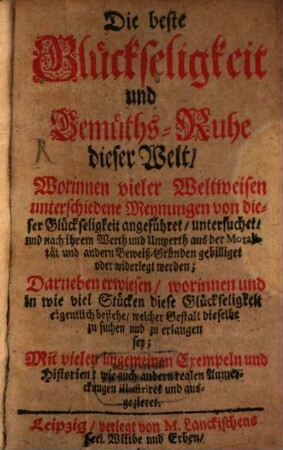 Die beste
Glückseligkeit
und
Gemüths-Ruhe
dieser Welt/
Worinnen vieler Weltweisen
unterschiedene Meynungen von die-
ser Glückseligkeit angeführet/ untersuchet/
und nach ihrem Werth und Unwerth aus der Morali-
tät und andern Beweiß-Gründen gebilliget
oder widerlegt werden;
Darneben erwiesen/ worinnen und
in wie viel Stücken diese Glückseligkeit
eigentlich bestehe/ welcher Gestalt dieselbe
zu suchen und zu erlangen
sey;
Mit vielen ungemeinen Exempeln und
Historien/ wie auch andern realen Anmer-
ckungen illustriret und aus-
gezieret.
Leipzig/ verlegt von M. Lanckischens
seel. Witbe und Erben/